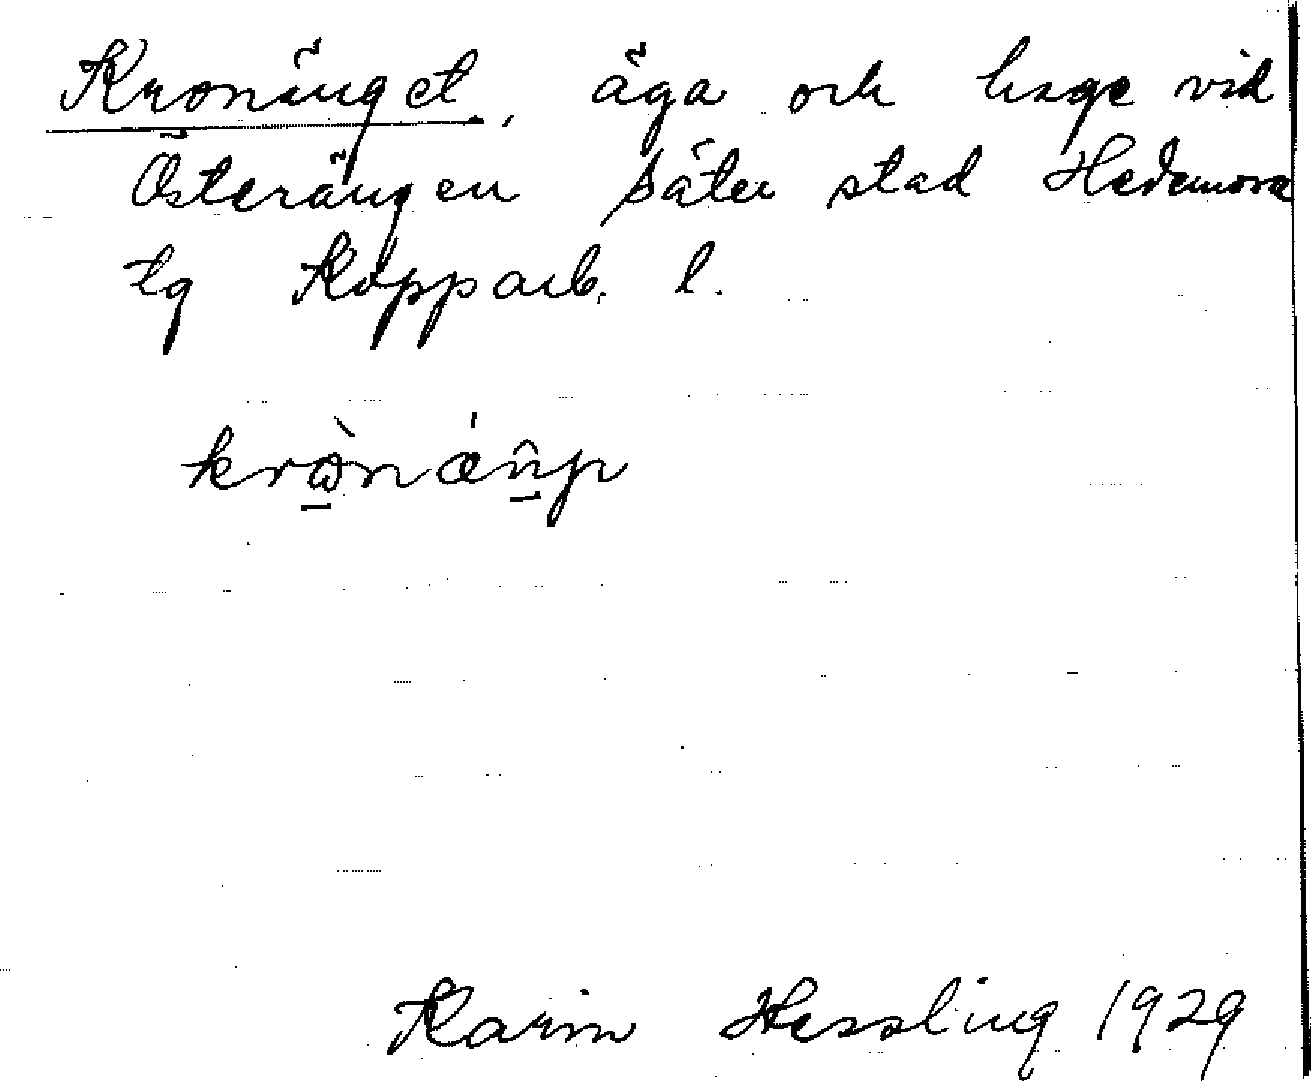 Kronänget, äga och hage vid
Österängen Säter stad Hedemora
tg Kopparb. l.
Karin Hessling 1929